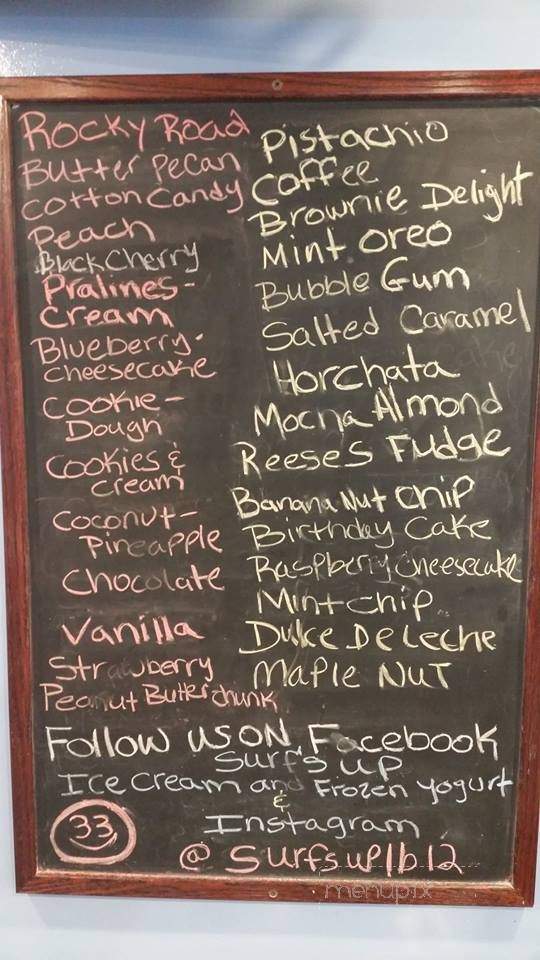 Rocky Road
Butter Pecan
Cotton Candy
Peach
Black Cherry
Pralines-
Cream
Blueberry-
Cheesecake
Cookie-
Dough
Cookies &
Cream
Coconut-
Pineapple
Chocolate
Vanilla
Strawberry
Peanut Butter chunk
Pistachio
Coffee
Brownie Delight
Mint Oreo
Bubble Gum
Salted Caramel
Horchata
Mocha Almond
Reeses Fudge
Banana Nut Chip
Birthday Cake
Raspberry Cheesecake
Mint Chip
Dulce De Leche
Maple Nut
Follow us on Facebook
Surf's up
Ice Cream and Frozen yogurt
&
Instagram
33
@ surfsuplb12
menupix